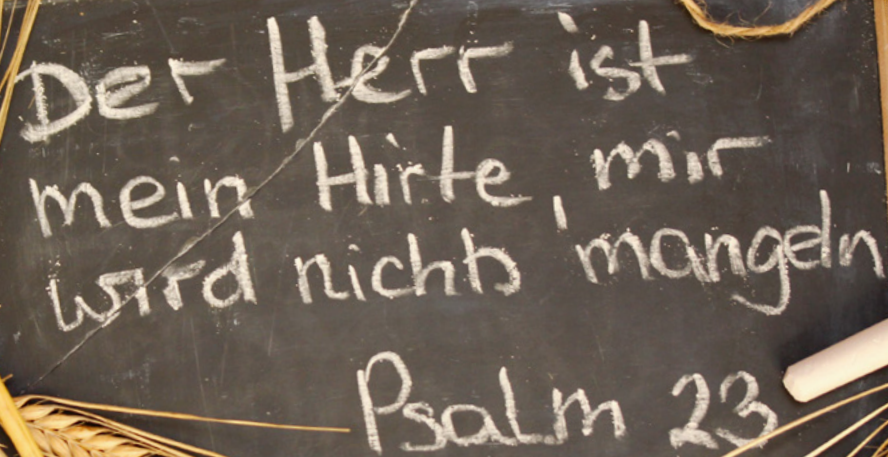 Der Herr ist
mein Hirte, mir
wird nichts mangeln
Psalm 23